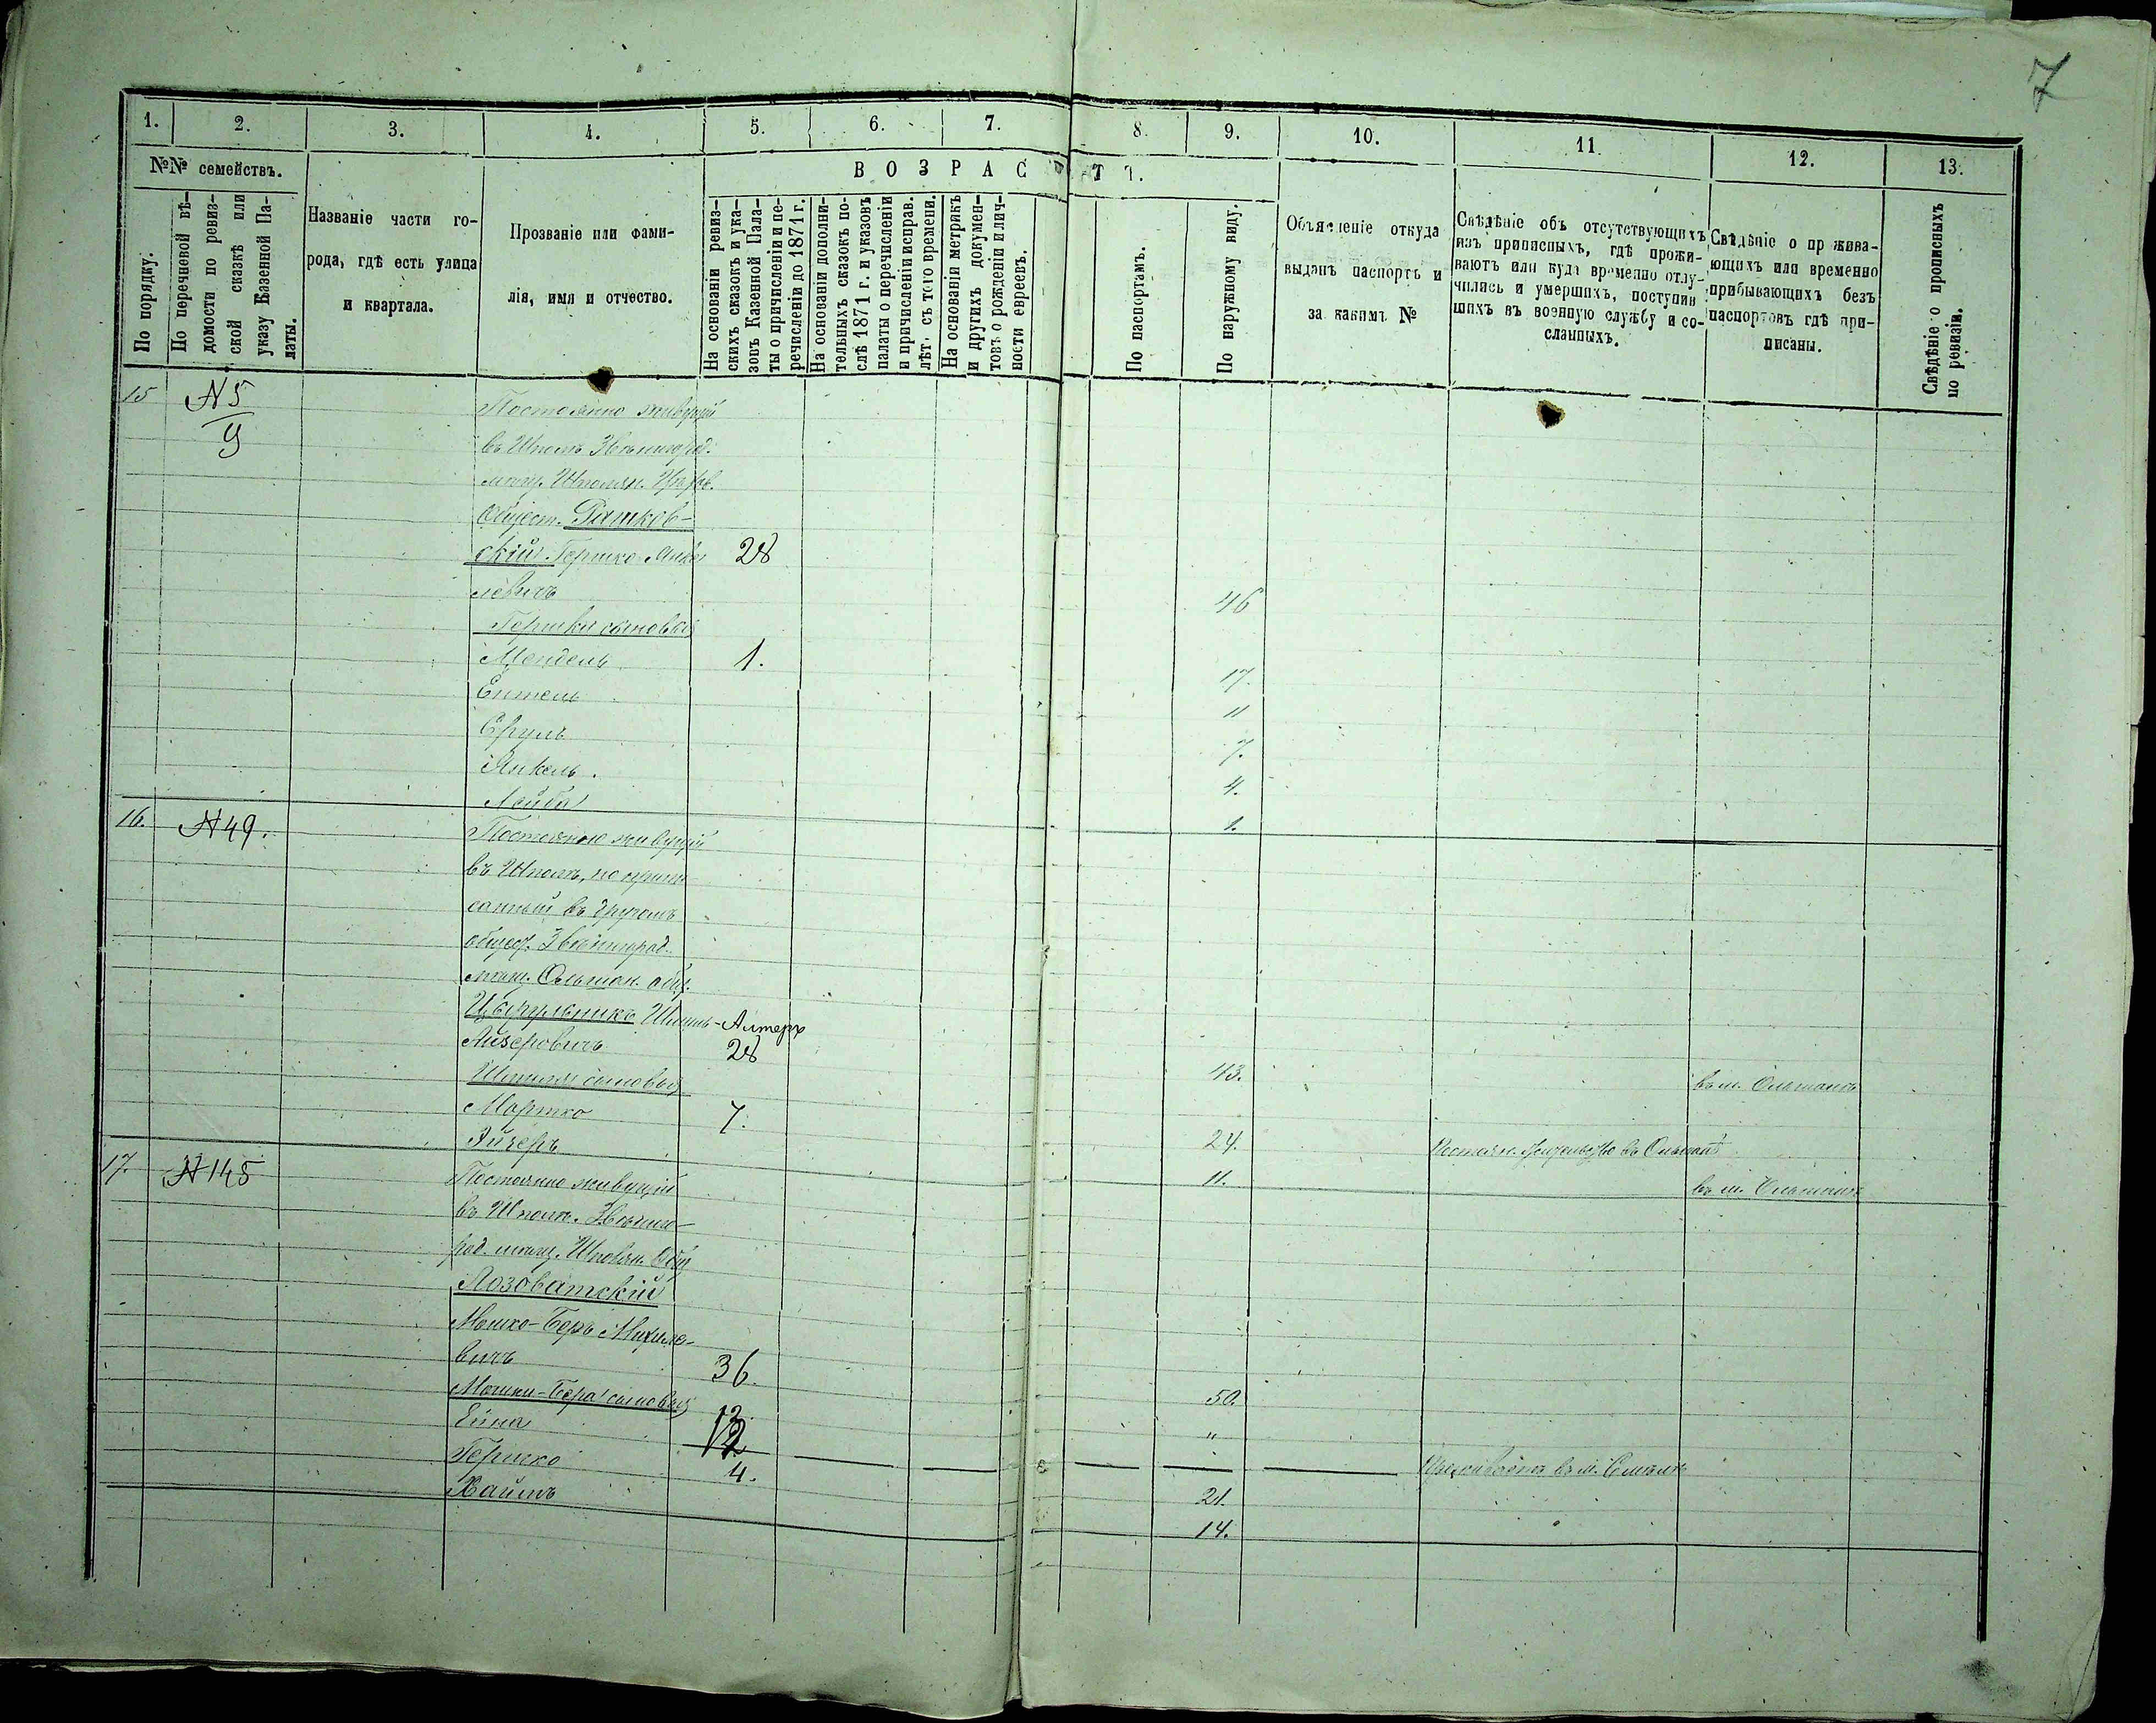 7
1. 2. 3. 4. 5. 6. 7. 8. 9. 10. 11. 12. 13.
№№ семействъ.
По порядку.
По перечневой вѣ-
домости по ревиз-
ской сказкѣ или
указу Казенной Па-
латы.
Названіе части го-
рода, гдѣ есть улица
и квартала.
Прозваніе или фами-
лія, имя и отчество.
ВОЗРАСТЪ.
На основаніи ревиз-
скихъ сказокъ и ука-
зовъ Казенной Пала-
ты о причисленіи и пе-
речисленіи до 1871 г.
На основаніи дополни-
тельныхъ сказокъ по-
слѣ 1871 г. и указовъ
палаты о перечисленіи
и причисленіи исправ.
лѣт. съ того времени.
На основаніи метрикъ
и другихъ докумен-
товъ о рожденіи и лич-
ности евреевъ.
По паспортамъ.
По наружному виду.
Объясненіе откуда
выданъ паспортъ и
за какимъ №
Свѣдѣніе объ отсутствующихъ
изъ приписныхъ, гдѣ прожи-
ваютъ или куда временно отлу-
чились и умершихъ, поступив
шихъ въ военную службу и со-
сланныхъ.
Свѣдѣніе о прожива-
ющихъ или временно
прибывающихъ безъ
паспортовъ гдѣ при-
писаны.
Свѣдѣніе о прописныхъ
по ревизіи.
15 N 5
9
Постоянно живущій
въ Шполѣ Звенигород.
мѣщ. Шполян.
общест. Рашков-
скій Гершко 28
левичъ 46
Гершки сыновья
Мендель 1. 17.
11
Сруль 7.
Янкель. 4.
Лейба 1.
16. N 49.
Постоянно живущій
въ Шполѣ, но припи
санный въ другомъ
общес. Звенигород.
мѣщ. Ольшан. общ.
Цырульникъ Шмиль-Алтеръ
Айзеровичъ 28 43. въ м. Ольшанѣ
Шмиля сыновья
Мортко 7. 24. Постоян. жительство въ Ольшанѣ
Айзеръ 11. въ м. Ольшанѣ
17. N 145
Постоянно живущій
въ Шполѣ. Звениго-
род. мѣщ. Шполян. Общ
Лозоватскій
Мошко-Беръ Михиле-
вичъ 36. 50.
Мошки-Бера сыновья
12. "
Гершко 4. 21.
Хаимъ 14.